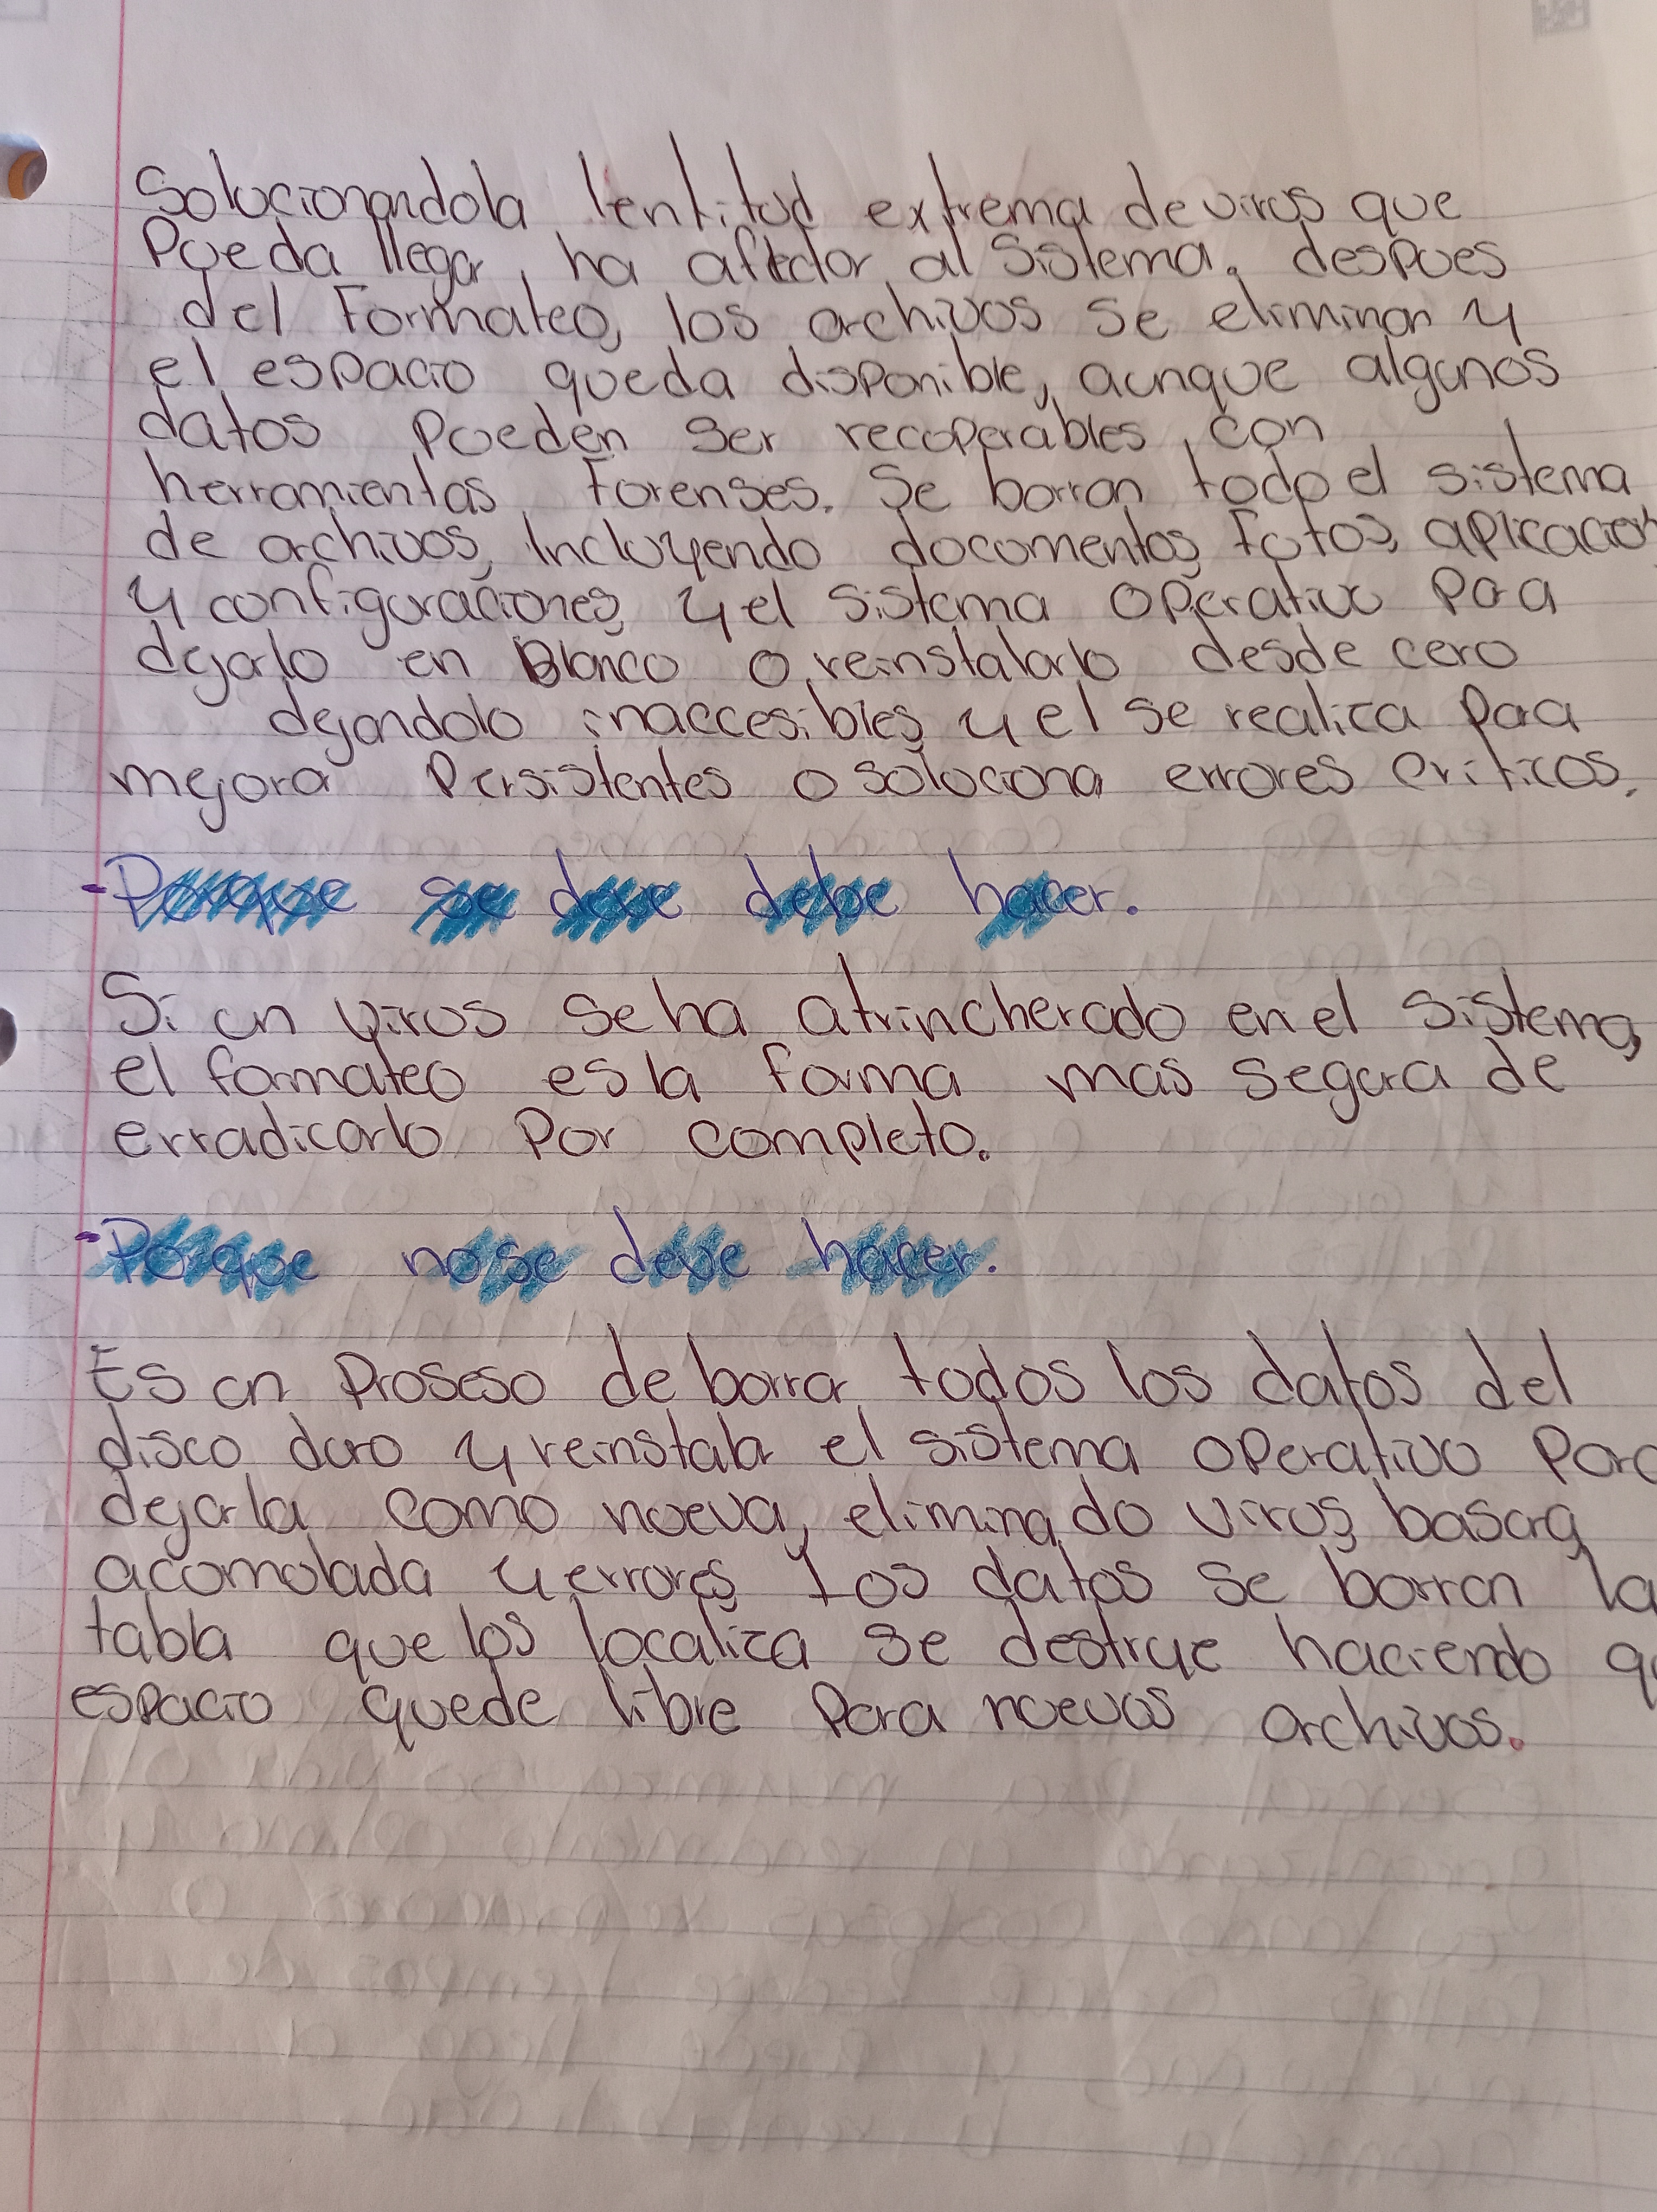 Solucionandola lentitud extrema de virus que
Pueda llegar, ha afectar al Sistema. despues
del Formateo, los archivos se eliminan y
el espacio queda disponible, aunque algunos
datos Pueden ser recuperables con
herramientas Forenses. Se borran todo el sistema
de archivos, Incluyendo documentos, Fotos, aplicacion
y configuraciones, y el sistema operativo Para
dejarlo en Blanco o reinstalarlo desde cero
dejandolo inaccesibles, y el se realiza Para
mejora Persistentes o soluciona errores Criticos.
-Porque se deve debe hacer.
Si un virus se ha atrincherado en el sistema,
el formateo es la forma mas segura de
erradicarlo Por completo.
-Porque no se deve hacer.
Es un Proseso de borrar todos los datos del
disco duro y reinstalar el sistema operativo Para
dejarla como nueva, eliminado virus, basura
acomulada y errores Los datos se borran la
tabla que los localiza se destruye haciendo qu
espacio quede libre Para nuevos archivos.